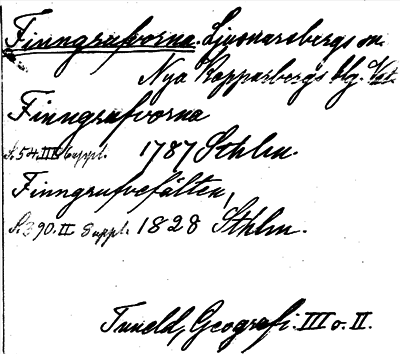 Finngrufvorna. Ljusnarsbergs sn.
Nya Kopparbergs blg. Vst.
Finngrufvorna
S. 54. III Suppl. 1787 Sthlm.
Finngrufvefälten,
S. 390. II Suppl. 1828 Sthlm.
Tuneld, Geografi. III o. II.